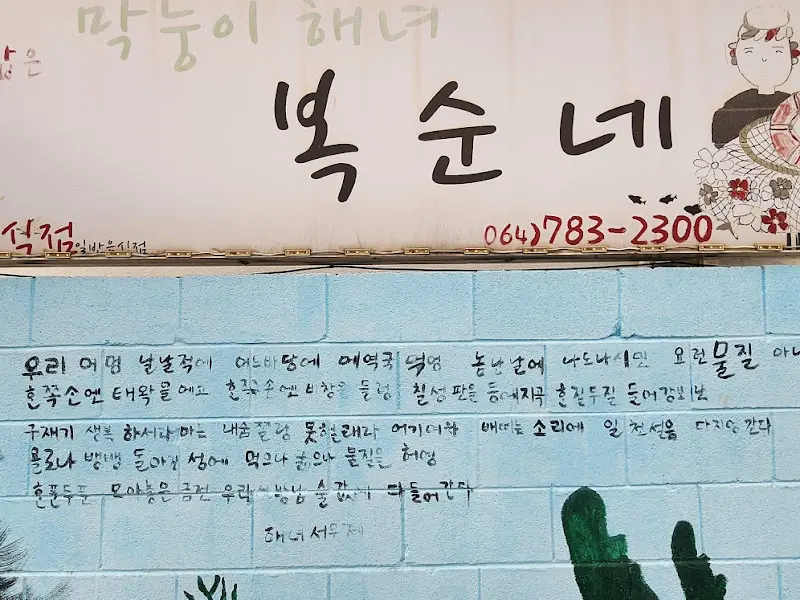 막둥이 해녀
은
복순네
식점
일반음식점
064)783-2300
우리 어멍 날날적에 어느바당에 메역국 먹엉 논난날에 나도나시민 요런물질 아니
혼쪽손엔 태왁을메고 혼쪽손엔 비창을 들렁 칠성판을 등에지곡 혼질두질 들어강보난
구재기 생복 하서라마는 내숨절랑 못헐래라 어기여라 배띄는소리에 일천설움 다지엉간다
욜로나 뱅뱅 돌아진 섬에 먹으나 굶으나 물질은 허영
혼푼두푼 모아놓은 금전 우리 서방님 술값에 다들어간다
해녀서우제